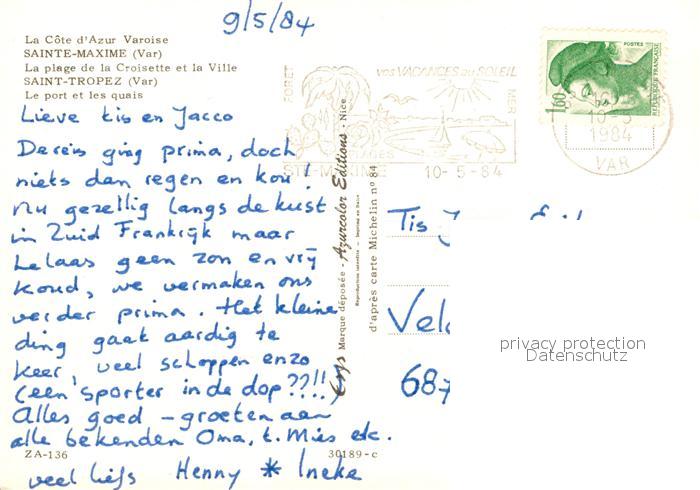 9/5/84
La Côte d'Azur Varoise
SAINTE-MAXIME (Var)
La plage de la Croisette et la Ville
SAINT-TROPEZ (Var)
Le port et les quais
Lieve tis en Jacco
De reis ging prima, doch
niets dan regen en kou!
Nu gezellig langs de kust
in Zuid Frankrijk maar
helaas geen zon en vrij
koud, we vermaken ons
verder prima. Het kleine
ding gaat aardig te
keer, veel schoppen enzo
(een sporter in de dop??!!)
Alles goed - groeten aan
alle bekenden Oma, t. Mies etc.
ZA-136
30189-c
veel liefs Henny * Ineke
Krys Marque déposée - Azurcolor Editions - Nice
Reproductions interdites - Imprimé en
d'après carte Michelin nº 84
FORET
vos VACANCES au SOLEIL
MER
PLAGES
STE-MAXIME 10-5-84
POSTES
REPUBLIQUE FRANÇAISE
1,60
10-5
1984
VAR
Tis
Vel
687
privacy protection
Datenschutz